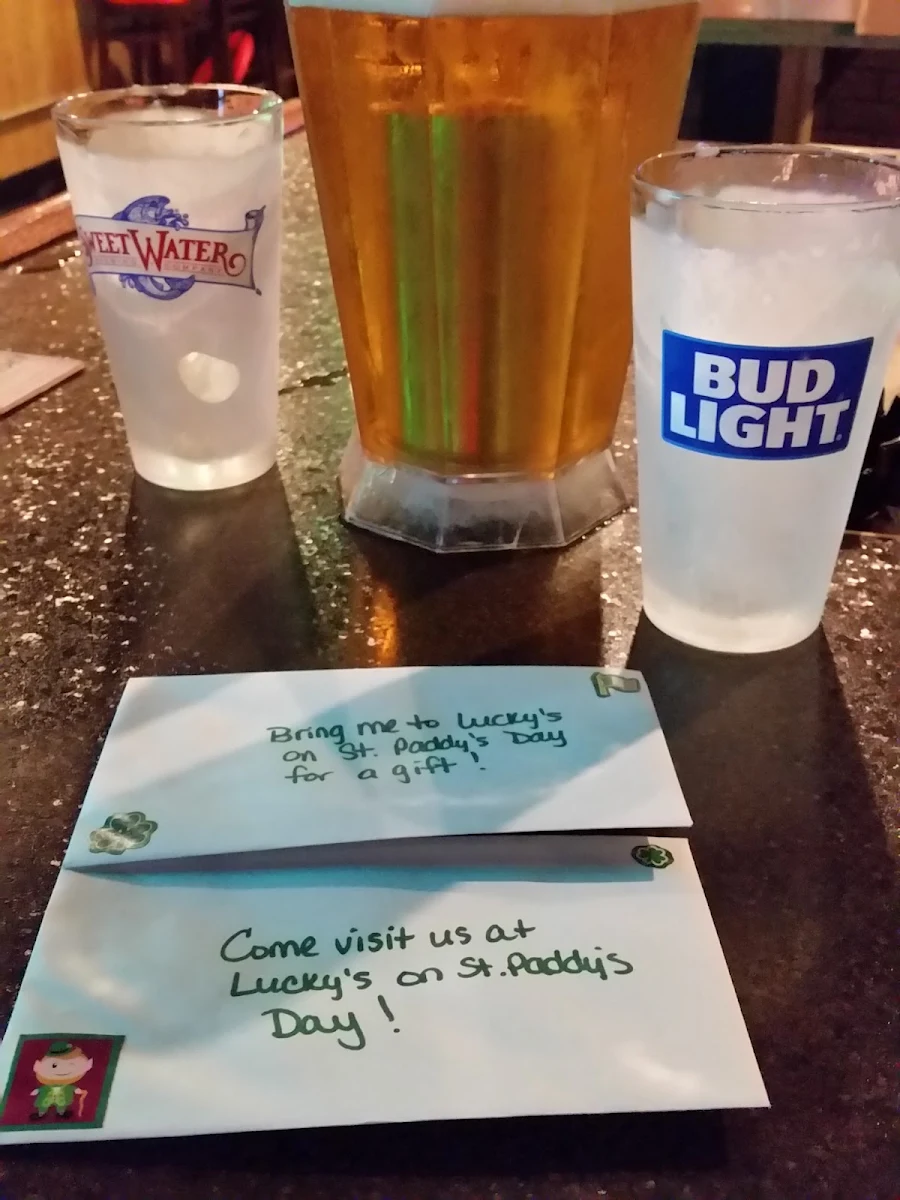 WEETWATER
COMPANY
BUD
LIGHT.
Bring me to Lucky's
on St. Paddy's Day
for a gift!
Come visit us at
Lucky's on St. Paddy's
Day!